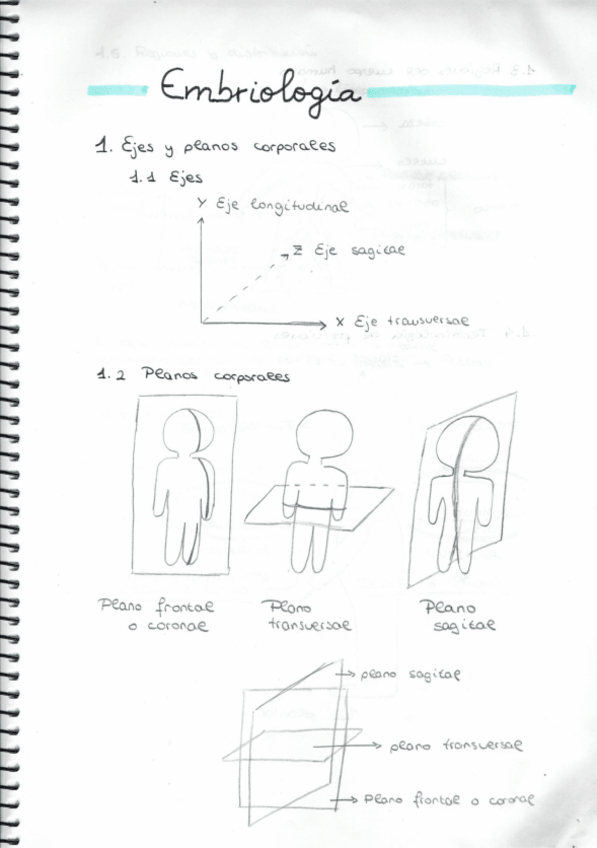 Embriología
1. Ejes y planos corporales
1.1 Ejes
Y Eje longitudinal
Z Eje sagital
X Eje transversal
1.2 Planos corporales
Plano frontal
o coronal
Plano
transversal
Plano
sagital
plano sagital
plano transversal
Plano frontal o coronal